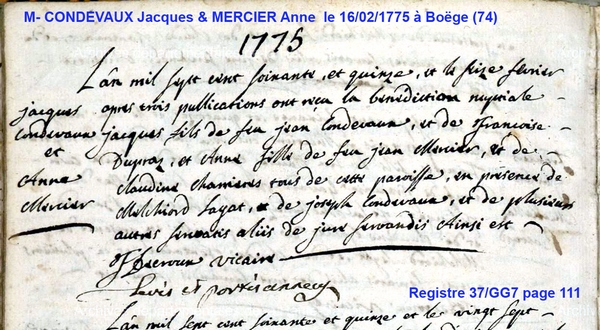 M- CONDEVAUX Jacques & MERCIER Anne le 16/02/1775 à Boëge (74)
1775
L'an mil sept cent soixante et quinze, et le seize fevrier
apres trois publications ont reçu la benediction nuptiale
jacques fils de feu jean Condevaux, et de francoise
Dupraz, et Anne fille de feu jean Mercier, et de
claudine charrieres tous de cette paroisse, en présence de
Melchiord Layat, et de joseph Condevaux, et de plusieurs
autres servatis aliis de jure servandis Ainsi est
Decroux vicaire
jacques
Condevaux
et
Anne
Mercier
Registre 37/GG7 page 111
L'an mil sept cent soixante et quinze et le vingt sept